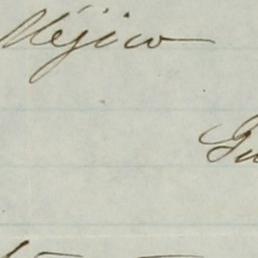 Méjico
Gu